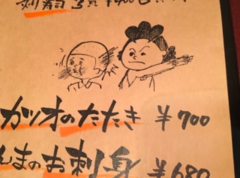 刺身
カツオのたたき ¥700
んまのお刺身 ¥680